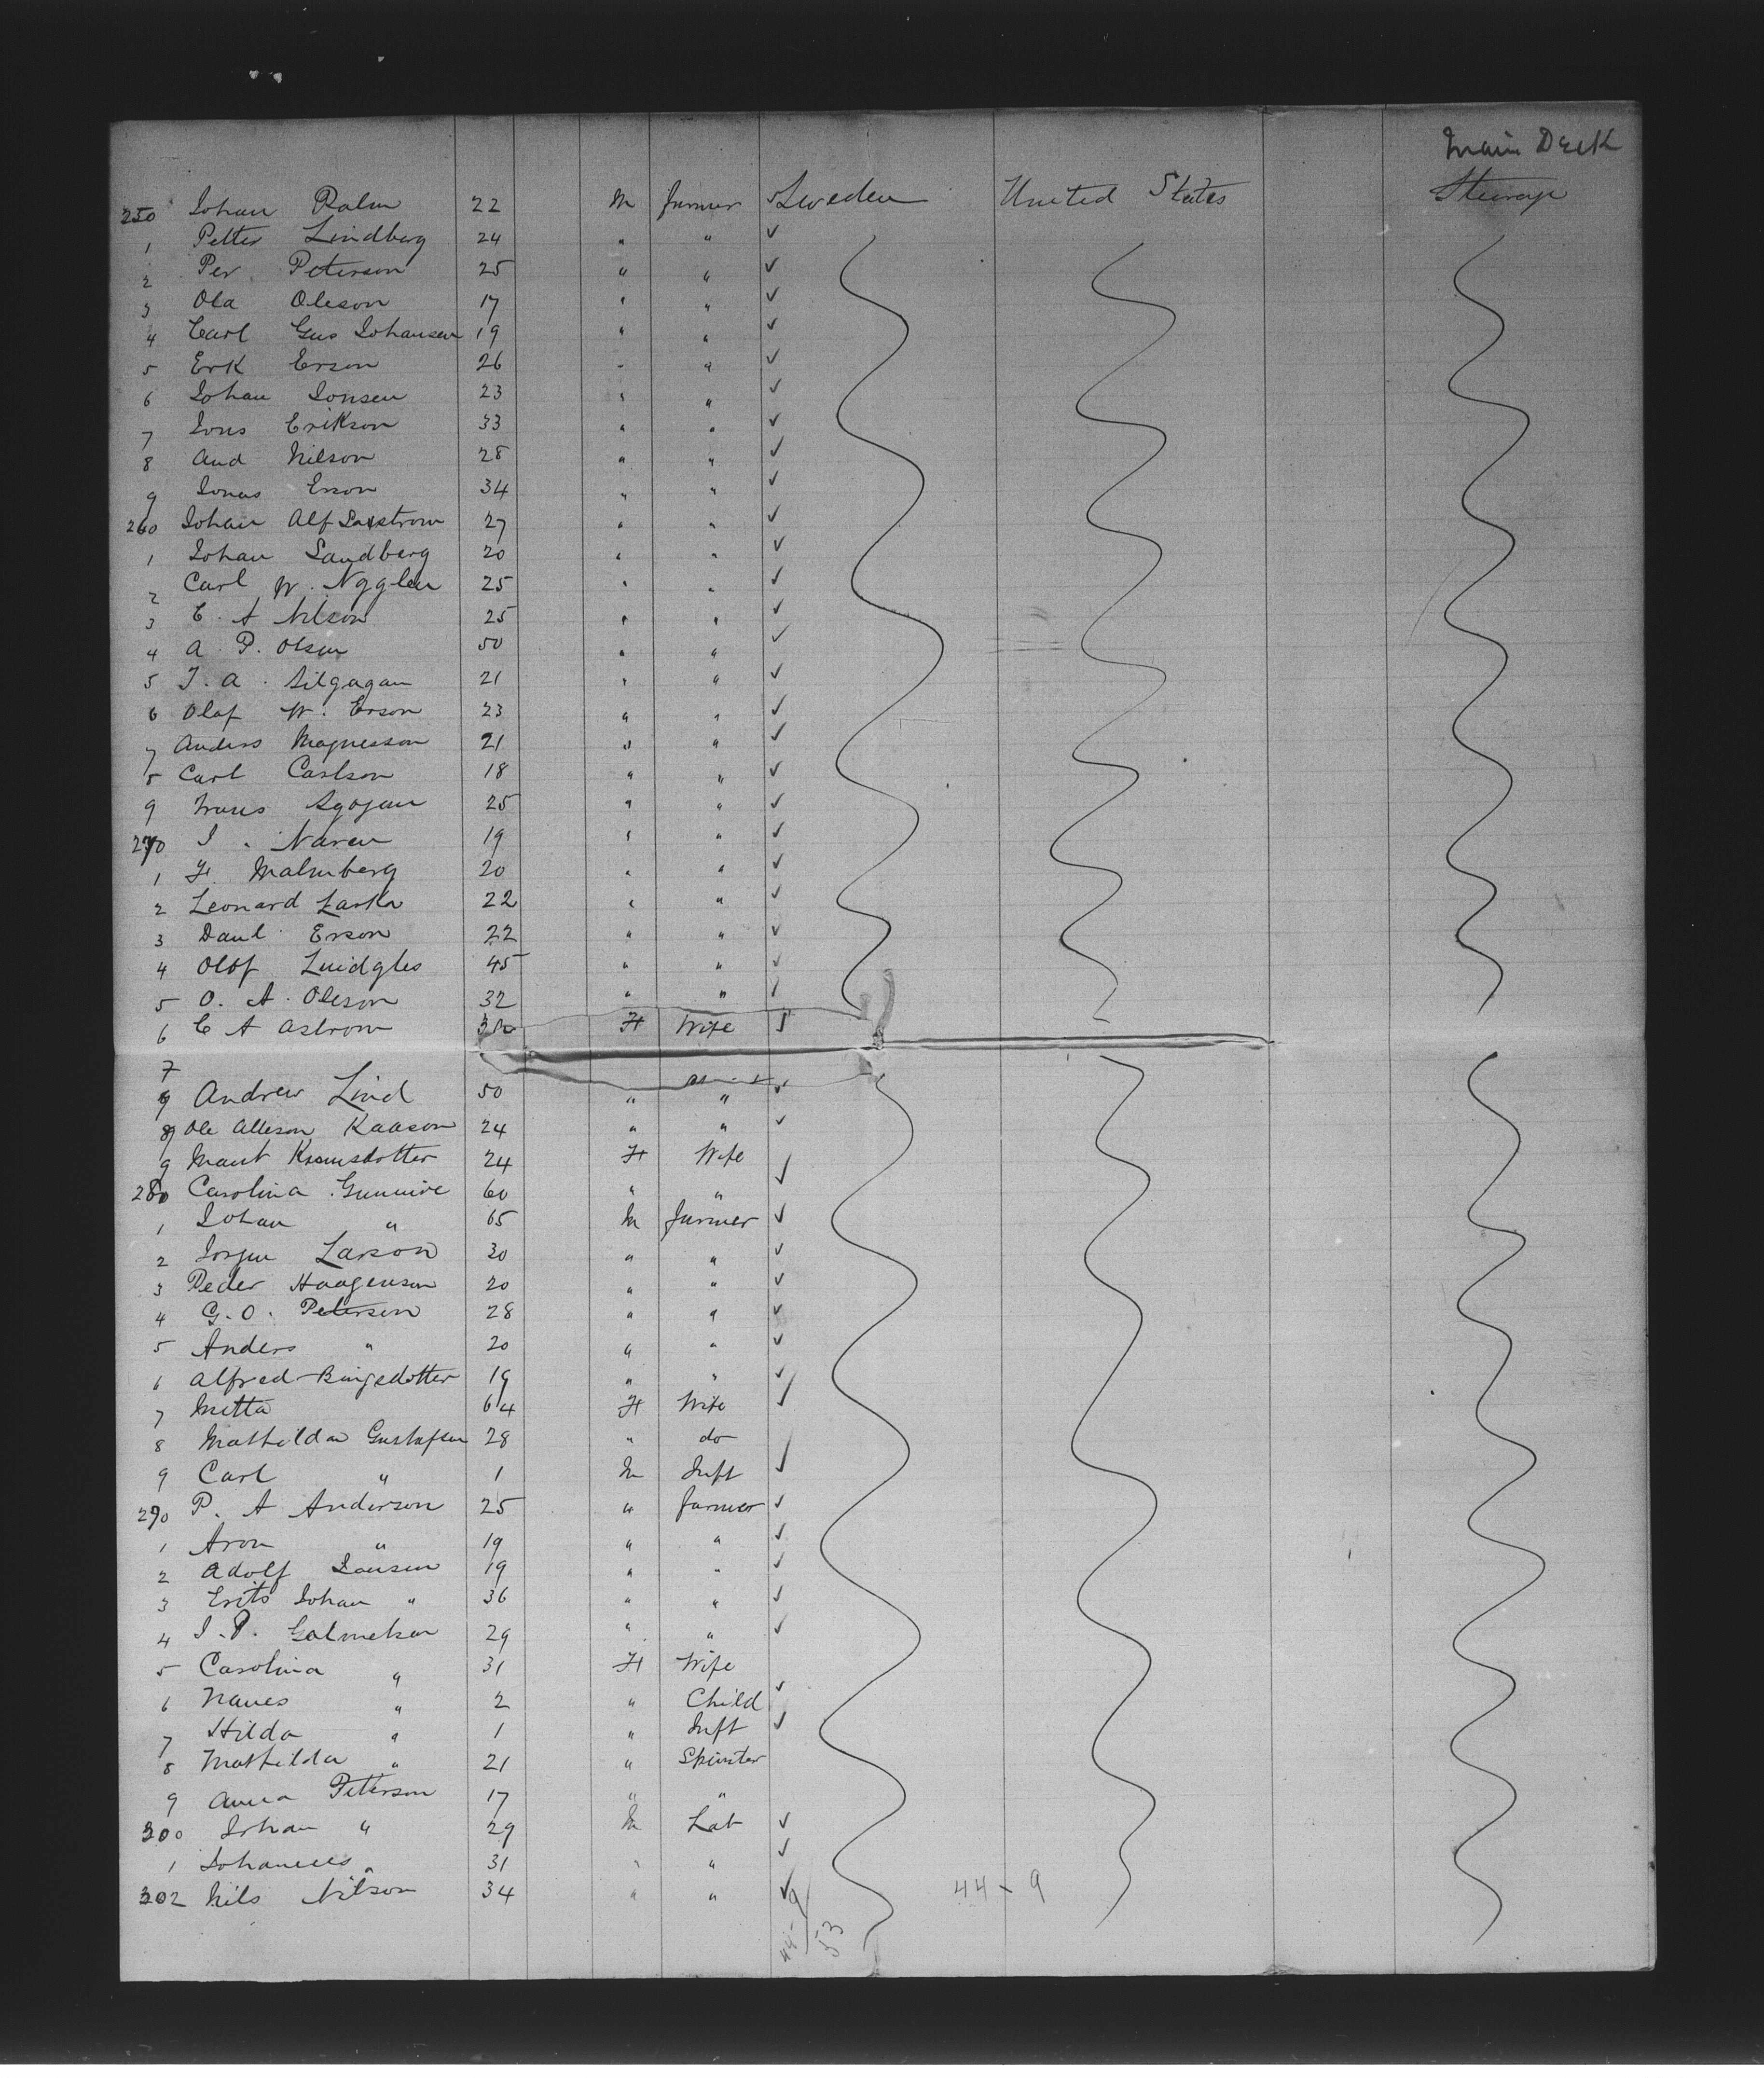 Main Deck
250 Johan Palm 22 M farmer Sweden United States Steerage
1 Petter Lindberg 24 " " ✓
2 Per Peterson 25 " " ✓
3 Ola Oleson 17 " " ✓
4 Carl Gus Johansen 19 " " ✓
5 Erk Erson 26 " " ✓
6 Johan Jonsen 23 " " ✓
7 Jons Erikson 33 " " ✓
8 And Nilson 28 " " ✓
9 Jonas Erson 34 " " ✓
260 Johan Alf 27 " " ✓
1 Johan Sandberg 20 " " ✓
2 Carl W. 25 " " ✓
3 E. A Nilson 25 " " ✓
4 A. P. Olsen 50 " " ✓
5 J. A. 21 " " ✓
6 Olaf W. Erson 23 " " ✓
7 Anders Magnesson 21 " " ✓
8 Carl Carlson 18 " " ✓
9 25 " " ✓
270 J. Naren 19 " " ✓
1 H. Malmberg 20 " " ✓
2 Leonard Laska 22 " " ✓
3 Danl Erson 22 " " ✓
4 Olof 45 " " ✓
5 O. A. Oleson 32 " " ✓
6 C A Astrom F Wife ✓
7
9 Andrew Lind 50 " " ✓
8 Ole Alleson Kaason 24 " " ✓
9 24 F Wife
280 Carolina 60 " " ✓
1 Johan " 65 M farmer ✓
2 Jorgen Larson 30 " " ✓
3 Peder Haagenson 20 " " ✓
4 G. O. Peterson 28 " " ✓
5 Anders " 20 " " ✓
6 Alfred Bingsdotter 19 " " ✓
7 Metta 64 F Wife ✓
8 Mathilda Gustafsen 28 " do
9 Carl " 1 M Inft ✓
290 P. A Anderson 25 " farmer ✓
1 Aron " 19 " " ✓
2 Adolf Jansen 19 " " ✓
3 Erits Johan " 36 " " ✓
4 J. P. 29 " " ✓
5 Carolina " 31 F Wife
6 " 2 " Child ✓
7 Hilda " 1 " Inft ✓
8 Mathilda " 21 " Spinster
9 Anna Peterson 17 " "
300 Johan " 29 M Lab ✓
1 Johannes " 31 " " ✓
302 Nils Nilson 34 " " ✓
44 - 9
44-9
53